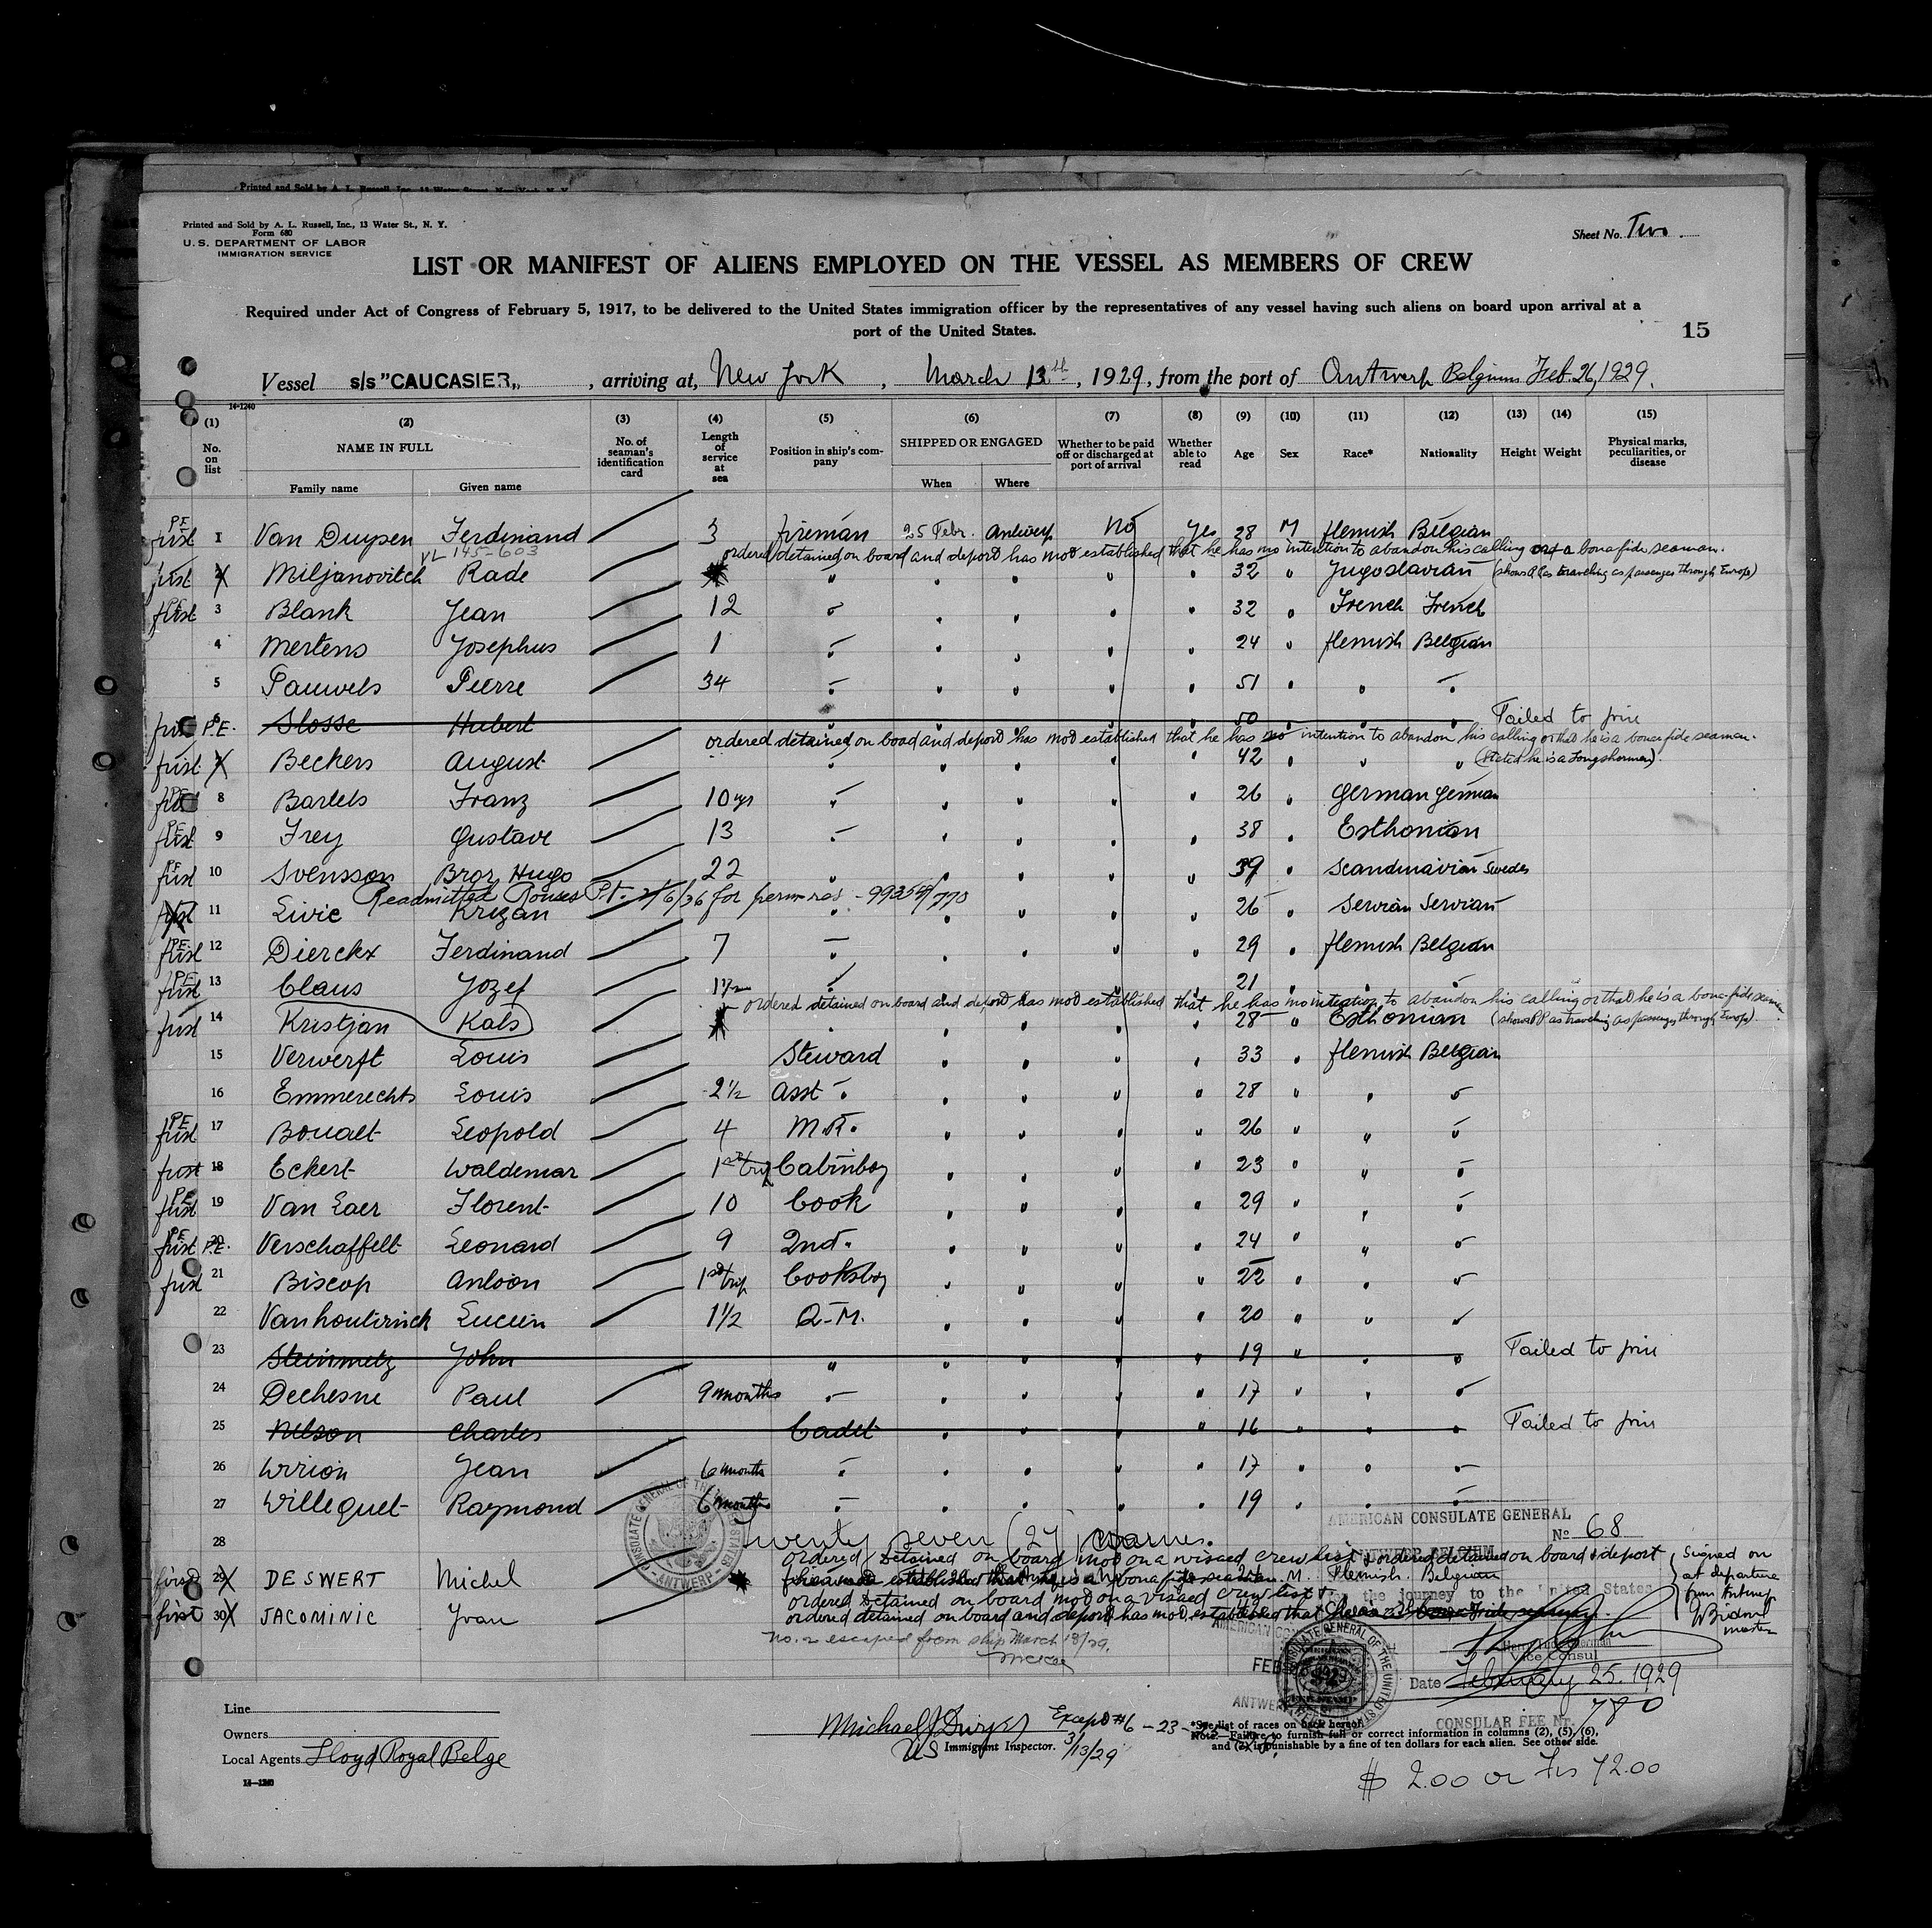 Printed and Sold by A. L. Russell, Inc., 13 Water St., N. Y.
Form 680
U. S. DEPARTMENT OF LABOR
IMMIGRATION SERVICE
Sheet No. Two.
LIST OR MANIFEST OF ALIENS EMPLOYED ON THE VESSEL AS MEMBERS OF CREW
Required under Act of Congress of February 5, 1917, to be delivered to the United States immigration officer by the representatives of any vessel having such aliens on board upon arrival at a
port of the United States.
15
Vessel s/s "CAUCASIER", arriving at, New York, March 13th, 1929, from the port of Antwerp Belgium Feb. 26, 1929.
14-1240
(1) (2) (3) (4) (5) (6) (7) (8) (9) (10) (11) (12) (13) (14) (15)
No. on list NAME IN FULL No. of seaman's identification card Length of service at sea Position in ship's company SHIPPED OR ENGAGED Whether to be paid off or discharged at port of arrival Whether able to read Age Sex Race* Nationality Height Weight Physical marks, peculiarities, or disease
Family name Given name When Where
P.E. first 1 Van Duysen Ferdinand 3 fireman 25 Febr. Antwerp No Yes 28 M flemish Belgian
VL 145-603
ordered detained on board and deport has not established that he has no intention to abandon his calling or a bona fide seaman.
first 2 Miljanovitch Rade " 32 " Jugoslavian (shows PP as traveling as passenger through Europe)
first 3 Blank Jean 12 " 32 " French French
4 Mertens Josephus 1 " 24 " flemish Belgian
5 Pauwels Pierre 34 " 51 " " "
first 6 P.E. Slosse Hubert " 50 " " " Failed to join
ordered detained on board and deport has not established that he has no intention to abandon his calling or that he is a bona fide seaman.
first 7 Beckers August " 42 " " " (stated he is a Longshoreman).
P.E. first 8 Bartels Franz 10 yrs " 26 " German German
P.E. first 9 Frey Gustave 13 " 38 " Esthonian
P.E. first 10 Svensson Bror Hugo 22 " 39 " Scandinavian Swedes
Readmitted Rouses Pt. 2/6/36 for perm res - 99354/770
first 11 Livic Krizan " 26 " Servian Servian
P.E. first 12 Dierckx Ferdinand 7 " 29 " flemish Belgian
P.E. first 13 Claus Jozef 1 1/2 " 21 " " "
ordered detained on board and deport has not established that he has no intention to abandon his calling or that he is a bona fide seaman.
first 14 Kristjan Kals " 28 " Esthonian (shows PP as traveling as passenger through Europe).
15 Verwerft Louis Steward " 33 " flemish Belgian
16 Emmerechts Louis 2 1/2 Asst " 28 " " "
P.E. first 17 Boualt Leopold 4 M.R. " 26 " " "
first 18 Eckert Waldemar 1st trip Cabinboy " 23 " " "
P.E. first 19 Van Laer Florent 10 Cook " 29 " " "
P.E. first 20 P.E. Verschaffelt Leonard 9 2nd " 24 " " "
first 21 Biscop Antoon 1st trip Cooksboy " 22 " " "
22 Lucien 1 1/2 Q-M. " 20 " " "
23 Steinmetz John " 19 " " " Failed to join
24 Dechesne Paul 9 months " 17 " " "
25 Nelson Charles Cadet " 16 " " " Failed to join
26 Jean 6 months " 17 " " "
27 Willequet Raymond 6 months " 19 " " "
AMERICAN CONSULATE GENERAL
No 68
28 Twenty seven (27) names.
ordered detained on board not on a visaed crew list & ordered detained on board & deport
first 29 DESWERT Michel M. Flemish Belgian
ordered detained on board not on a visaed crew list &
first 30 JACOMINIC Yvan ordered detained on board and deport has not established that he is a bona fide seaman.
Signed on at departure from Antwerp
master
No. 2 escaped from ship March 18/29.
the journey to the United States
Vice Consul
Date February 25. 1929
780
CONSULAR FEE No.
Line
Owners
Local Agents Lloyd Royal Belge
14-1240
Michael J Dwyer Except #6 - 23 -
US Immigrant Inspector. 3/13/29
*See list of races on back hereof.
Note.—Failure to furnish full or correct information in columns (2), (5), (6),
and (7) is punishable by a fine of ten dollars for each alien. See other side.
$ 2.00 or Frs 72.00